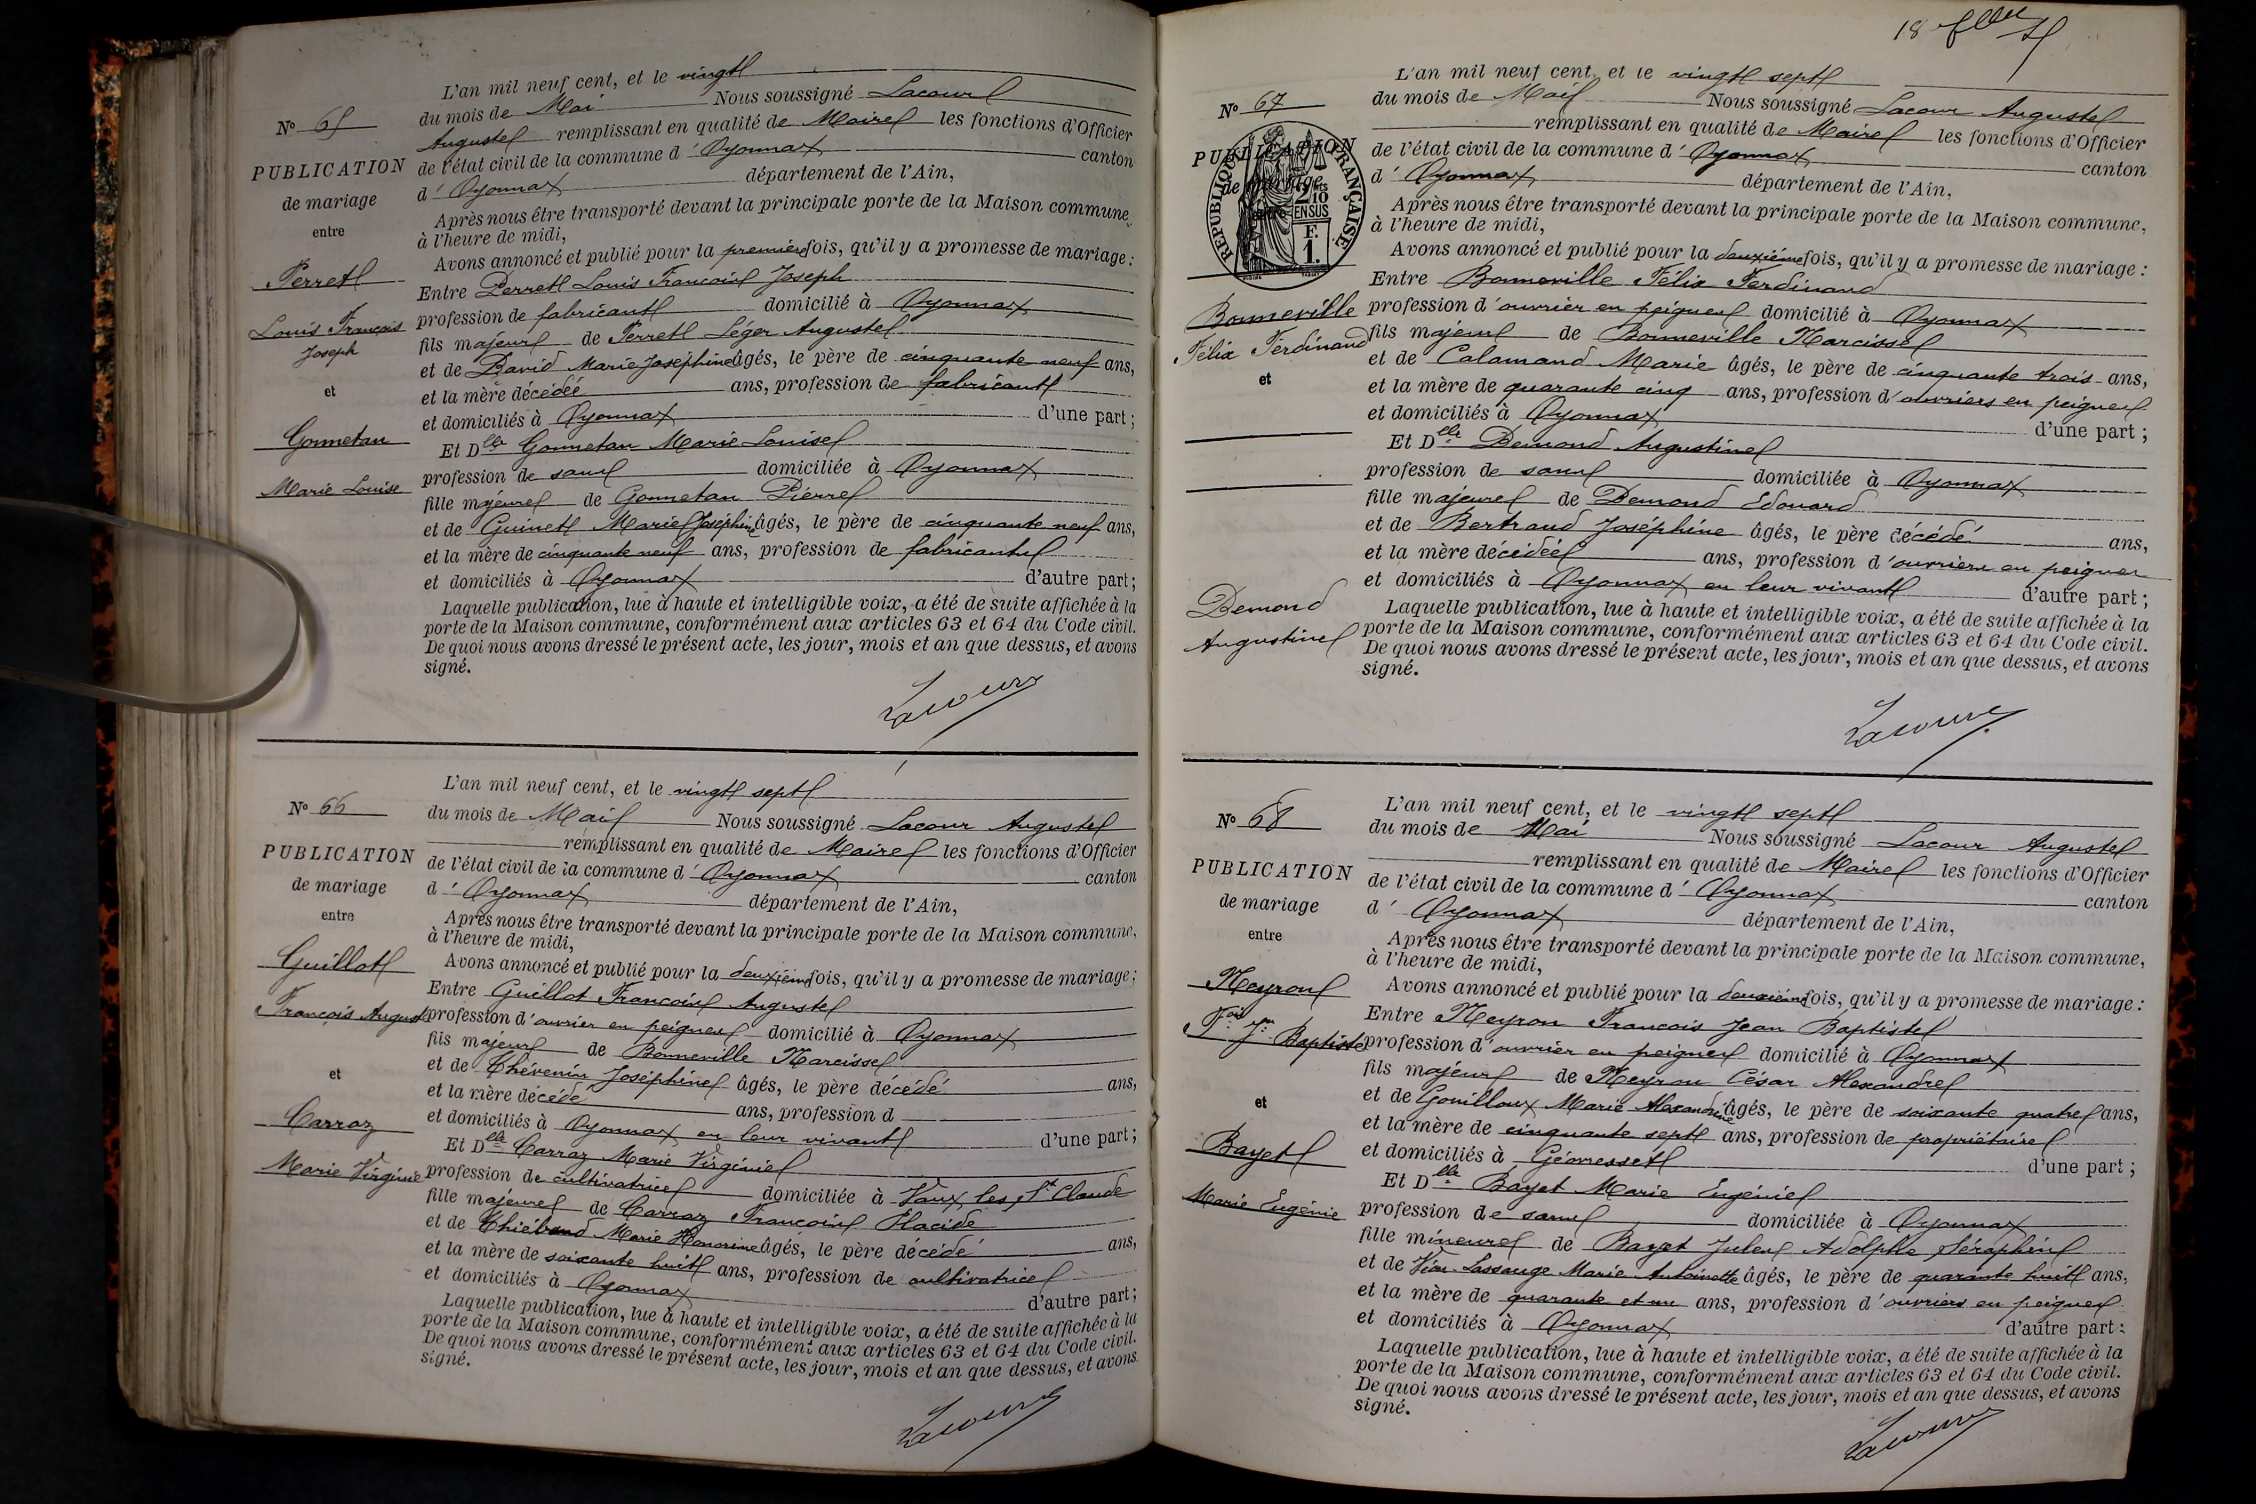 L'an mil neuf cent, et le vingt
du mois de Mai Nous soussigné Lacour
Auguste remplissant en qualité de Maire les fonctions d'Officier
de l'état civil de la commune d'Oyonnax canton
d'Oyonnax département de l'Ain,
Après nous être transporté devant la principale porte de la Maison commune,
à l'heure de midi,
Avons annoncé et publié pour la première fois, qu'il y a promesse de mariage :
Entre Perret Louis François Joseph
profession de fabricant domicilié à Oyonnax
fils majeur de Perret Léger Auguste
et de David Marie Joséphine âgés, le père de cinquante neuf ans,
et la mère décédée ans, profession de fabricant
et domiciliés à Oyonnax d'une part ;
Et Dlle Gonnetan Marie Louise
profession de sans domiciliée à Oyonnax
fille majeure de Gonnetan Pierre
et de Guinet Marie Joséphine âgés, le père de cinquante neuf ans,
et la mère de cinquante neuf ans, profession de fabricants
et domiciliés à Oyonnax d'autre part ;
Laquelle publication, lue à haute et intelligible voix, a été de suite affichée à la
porte de la Maison commune, conformément aux articles 63 et 64 du Code civil.
De quoi nous avons dressé le présent acte, les jour, mois et an que dessus, et avons
signé.
Lacour
No 65
PUBLICATION
de mariage
entre
Perret
Louis François
Joseph
et
Gonnetan
Marie Louise
L'an mil neuf cent, et le vingt sept
du mois de Mai Nous soussigné Lacour Auguste
remplissant en qualité de Maire les fonctions d'Officier
de l'état civil de la commune d'Oyonnax canton
d'Oyonnax département de l'Ain,
Après nous être transporté devant la principale porte de la Maison commune,
à l'heure de midi,
Avons annoncé et publié pour la deuxième fois, qu'il y a promesse de mariage ;
Entre Guillot François Auguste
profession d'ouvrier en peignes domicilié à Oyonnax
fils majeur de Bonneville Narcisse
et de Thévenin Joséphine âgés, le père décédé ans,
et la mère décédé ans, profession d
et domiciliés à Oyonnax en leur vivant d'une part ;
Et Dlle Carraz Marie Virginie
profession de cultivatrice domiciliée à Vaux les St Claude
fille majeure de Carraz François Placide
et de Thiébaud Marie Honorine âgés, le père décédé ans,
et la mère de soixante huit ans, profession de cultivatrice
et domiciliés à Oyonnax d'autre part ;
Laquelle publication, lue à haute et intelligible voix, a été de suite affichée à la
porte de la Maison commune, conformément aux articles 63 et 64 du Code civil.
De quoi nous avons dressé le présent acte, les jour, mois et an que dessus, et avons
signé.
Lacour
No 66
PUBLICATION
de mariage
entre
Guillot
François Auguste
et
Carraz
Marie Virginie
18
L'an mil neuf cent, et le vingt sept
du mois de Mai Nous soussigné Lacour Auguste
remplissant en qualité de Maire les fonctions d'Officier
de l'état civil de la commune d'Oyonnax canton
d'Oyonnax département de l'Ain,
Après nous être transporté devant la principale porte de la Maison commune,
à l'heure de midi,
Avons annoncé et publié pour la deuxième fois, qu'il y a promesse de mariage :
Entre Bonneville Félix Ferdinand
profession d'ouvrier en peignes domicilié à Oyonnax
fils majeur de Bonneville Narcisse
et de Calamand Marie âgés, le père de cinquante trois ans,
et la mère de quarante cinq ans, profession d'ouvriers en peignes
et domiciliés à Oyonnax d'une part ;
Et Dlle Demond Augustine
profession de sans domiciliée à Oyonnax
fille majeure de Demond Edouard
et de Bertrand Joséphine âgés, le père décédé ans,
et la mère décédée ans, profession d'ouvriers en peignes
et domiciliés à Oyonnax en leur vivant d'autre part ;
Laquelle publication, lue à haute et intelligible voix, a été de suite affichée à la
porte de la Maison commune, conformément aux articles 63 et 64 du Code civil.
De quoi nous avons dressé le présent acte, les jour, mois et an que dessus, et avons
signé.
Lacour
No 67
PUBLICATION
de mariage
entre
RÉPUBLIQUE FRANÇAISE
2/10
EN SUS
F.
1.
Bonneville
Félix Ferdinand
et
Demond
Augustine
L'an mil neuf cent, et le vingt sept
du mois de Mai Nous soussigné Lacour Auguste
remplissant en qualité de Maire les fonctions d'Officier
de l'état civil de la commune d'Oyonnax canton
d'Oyonnax département de l'Ain,
Après nous être transporté devant la principale porte de la Maison commune,
à l'heure de midi,
Avons annoncé et publié pour la deuxième fois, qu'il y a promesse de mariage :
Entre Neyron François Jean Baptiste
profession d'ouvrier en peignes domicilié à Oyonnax
fils majeur de Neyron César Alexandre
et de Gouilloux Marie Alexandrine âgés, le père de soixante quatre ans,
et la mère de cinquante sept ans, profession de propriétaire
et domiciliés à Géovresset d'une part ;
Et Dlle Bayet Marie Eugénie
profession de sans domiciliée à Oyonnax
fille mineure de Bayet Jules Adolphe Séraphin
et de Marie Antoinette âgés, le père de quarante huit ans,
et la mère de quarante et un ans, profession d'ouvriers en peignes
et domiciliés à Oyonnax d'autre part :
Laquelle publication, lue à haute et intelligible voix, a été de suite affichée à la
porte de la Maison commune, conformément aux articles 63 et 64 du Code civil.
De quoi nous avons dressé le présent acte, les jour, mois et an que dessus, et avons
signé.
Lacour
No 68
PUBLICATION
de mariage
entre
Neyron
Fois Jn Baptiste
et
Bayet
Marie Eugénie